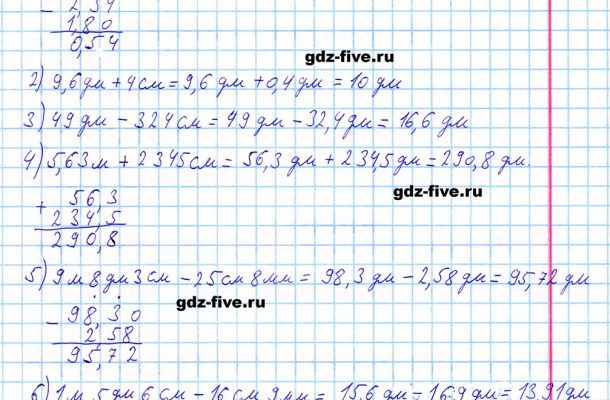 - 2,34
1,80
0,54
gdz-five.ru
2) 9,6 дм + 4 см = 9,6 дм + 0,4 дм = 10 дм
3) 49 дм - 324 см = 49 дм - 32,4 дм = 16,6 дм
4) 5,63 м + 2345 см = 56,3 дм + 234,5 дм = 290,8 дм.
gdz-five.ru
+ 56,3
234,5
290,8
5) 9 м 8 дм 3 см - 25 см 8 мм = 98,3 дм - 2,58 дм = 95,72 дм
gdz-five.ru
- 98,30
2,58
95,72
6) 1 м 5 дм 6 см - 16 см 9 мм = 15,6 дм - 1,69 дм = 13,91 дм